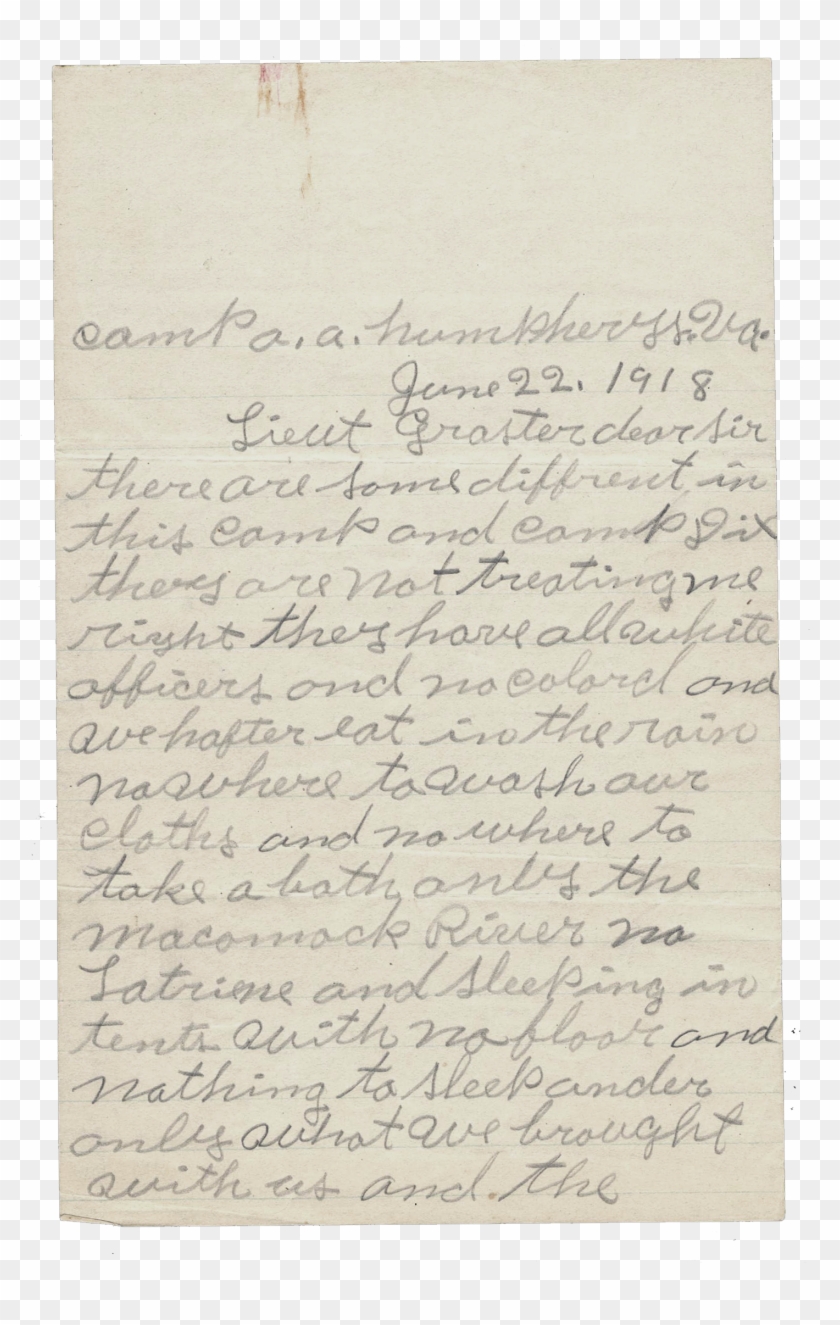 camp a. a. humphervss. Va.
June 22. 1918
Lieut Graster dear sir
there are some diffrent in
this camp and camp Dix
they are not treating me
right they have all white
officers and no colord and
we hafter eat in the rain
no where to wash our
cloths and no where to
take a bath only the
macomack River no
Latriene and sleeping in
tents with no floor and
nothing to sleep under
only what we brought
with us and the